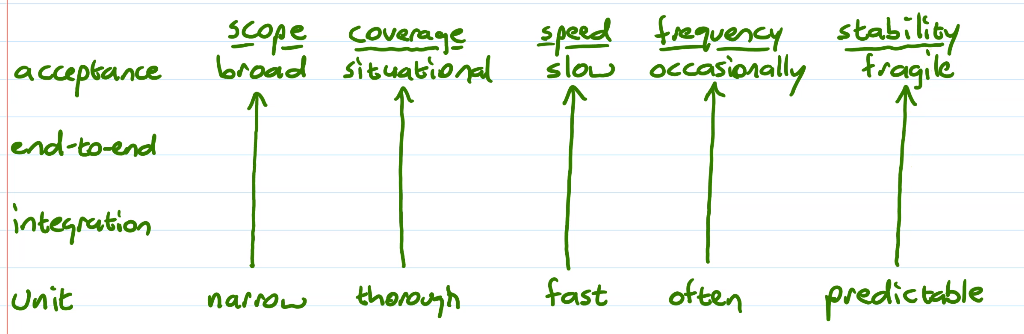 scope coverage speed frequency stability
acceptance broad situational slow occasionally fragile
end-to-end
integration
unit narrow thorough fast often predictable